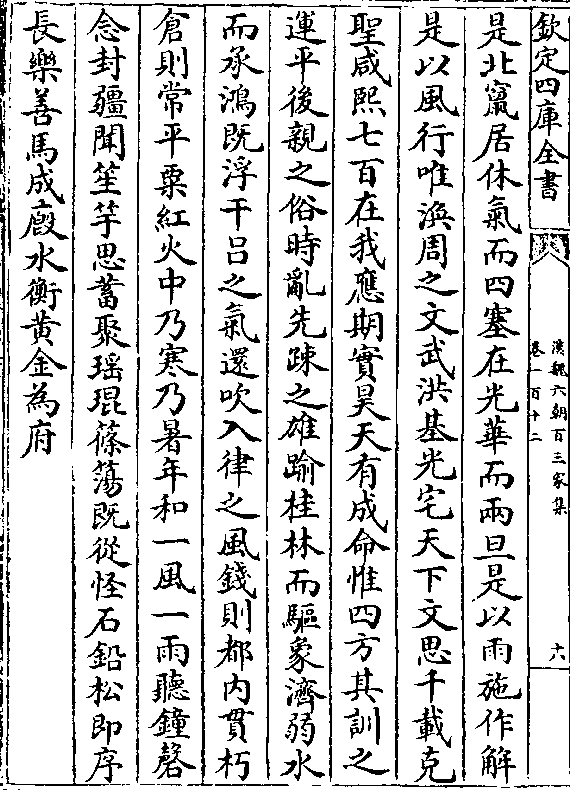 欽定四庫全書
漢魏六朝百三家集
卷一百十二
十六
是北竄居休氣而四塞在光華而兩旦是以雨施作解
是以風行唯渙周之文武洪基光宅天下文思千載克
聖咸熙七百在我應期實昊天有成命惟四方其訓之
運平後親之俗時亂先疎之雄踰桂林而驅象濟弱水
而承鴻既浮干呂之氣還吹入律之風錢則都內貫朽
倉則常平粟紅火中乃寒乃暑年和一風一雨聽鐘磬
念封疆聞笙竽思蓄聚瑶琨篠簜既從怪石鉛松即序
長樂善馬成廄水衡黃金為府